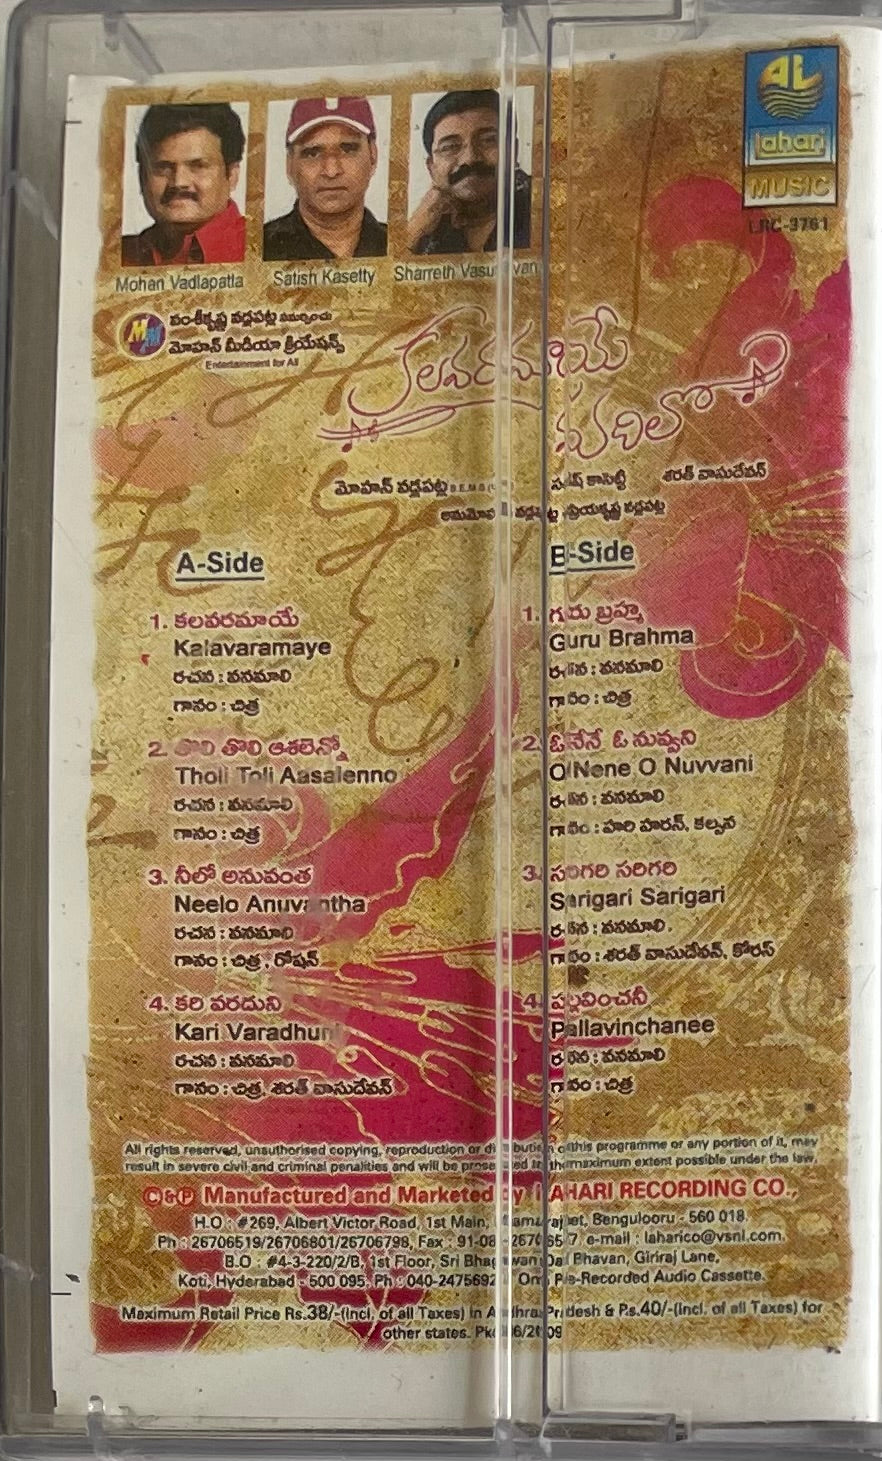 Lahari
MUSIC
LRC-3761
Mohan Vadlapatla Satish Kasetty Sharreth
వంశీకృష్ణ వడ్లపట్ల సమర్పించు
మోహన్ మీడియా క్రియేషన్స్
Entertainment for All
కలవరమాయే
మదిలో
మోహన్ వడ్లపట్ల కాసెట్టి శరత్ వాసుదేవన్
ప్రియకృష్ణ వడ్లపట్ల
A-Side
1. కలవరమాయే
Kalavaramaye
రచన : వనమాలి
గానం : చిత్ర
2. తొలి తొలి ఆశలెన్నో
Tholi Toli Aasalenno
రచన : వనమాలి
గానం : చిత్ర
3. నీలో అనువంత
Neelo Anuvantha
రచన : వనమాలి
గానం : చిత్ర, రోషన్
4. కరి వరదుని
Kari Varadhuni
రచన : వనమాలి
గానం : చిత్ర, శరత్ వాసుదేవన్
B-Side
1. గురు బ్రహ్మ
Guru Brahma
రచన : వనమాలి
గానం : చిత్ర
2. ఓ నేనే ఓ నువ్వని
O Nene O Nuvvani
రచన : వనమాలి
గానం : హరి హరన్, కల్పన
3. సరిగరి సరిగరి
Sarigari Sarigari
రచన : వనమాలి.
గానం : శరత్ వాసుదేవన్, కోరస్
4. పల్లవించనీ
Pallavinchanee
రచన : వనమాలి
గానం : చిత్ర
All rights reserved, unauthorised copying, reproduction or distribution of this programme or any portion of it, may
result in severe civil and criminal penalities and will be prosecuted to the maximum extent possible under the law.
©&℗ Manufactured and Marketed by LAHARI RECORDING CO.,
H.O : #269, Albert Victor Road, 1st Main, Chamarajpet, Bengulooru - 560 018.
Ph : 26706519/26706801/26706798, Fax : 91-08 e-mail : laharico@vsnl.com.
B.O : #4-3-220/2/B, 1st Floor, Sri Bhagwan Dal Bhavan, Giriraj Lane,
Koti, Hyderabad - 500 095, Ph : 040-2475692 One Pre-Recorded Audio Cassette.
Maximum Retail Price Rs.38/-(Incl. of all Taxes) in Andhra Pradesh & Rs.40/-(Incl. of all Taxes) for
other states. Pkd 06/2009